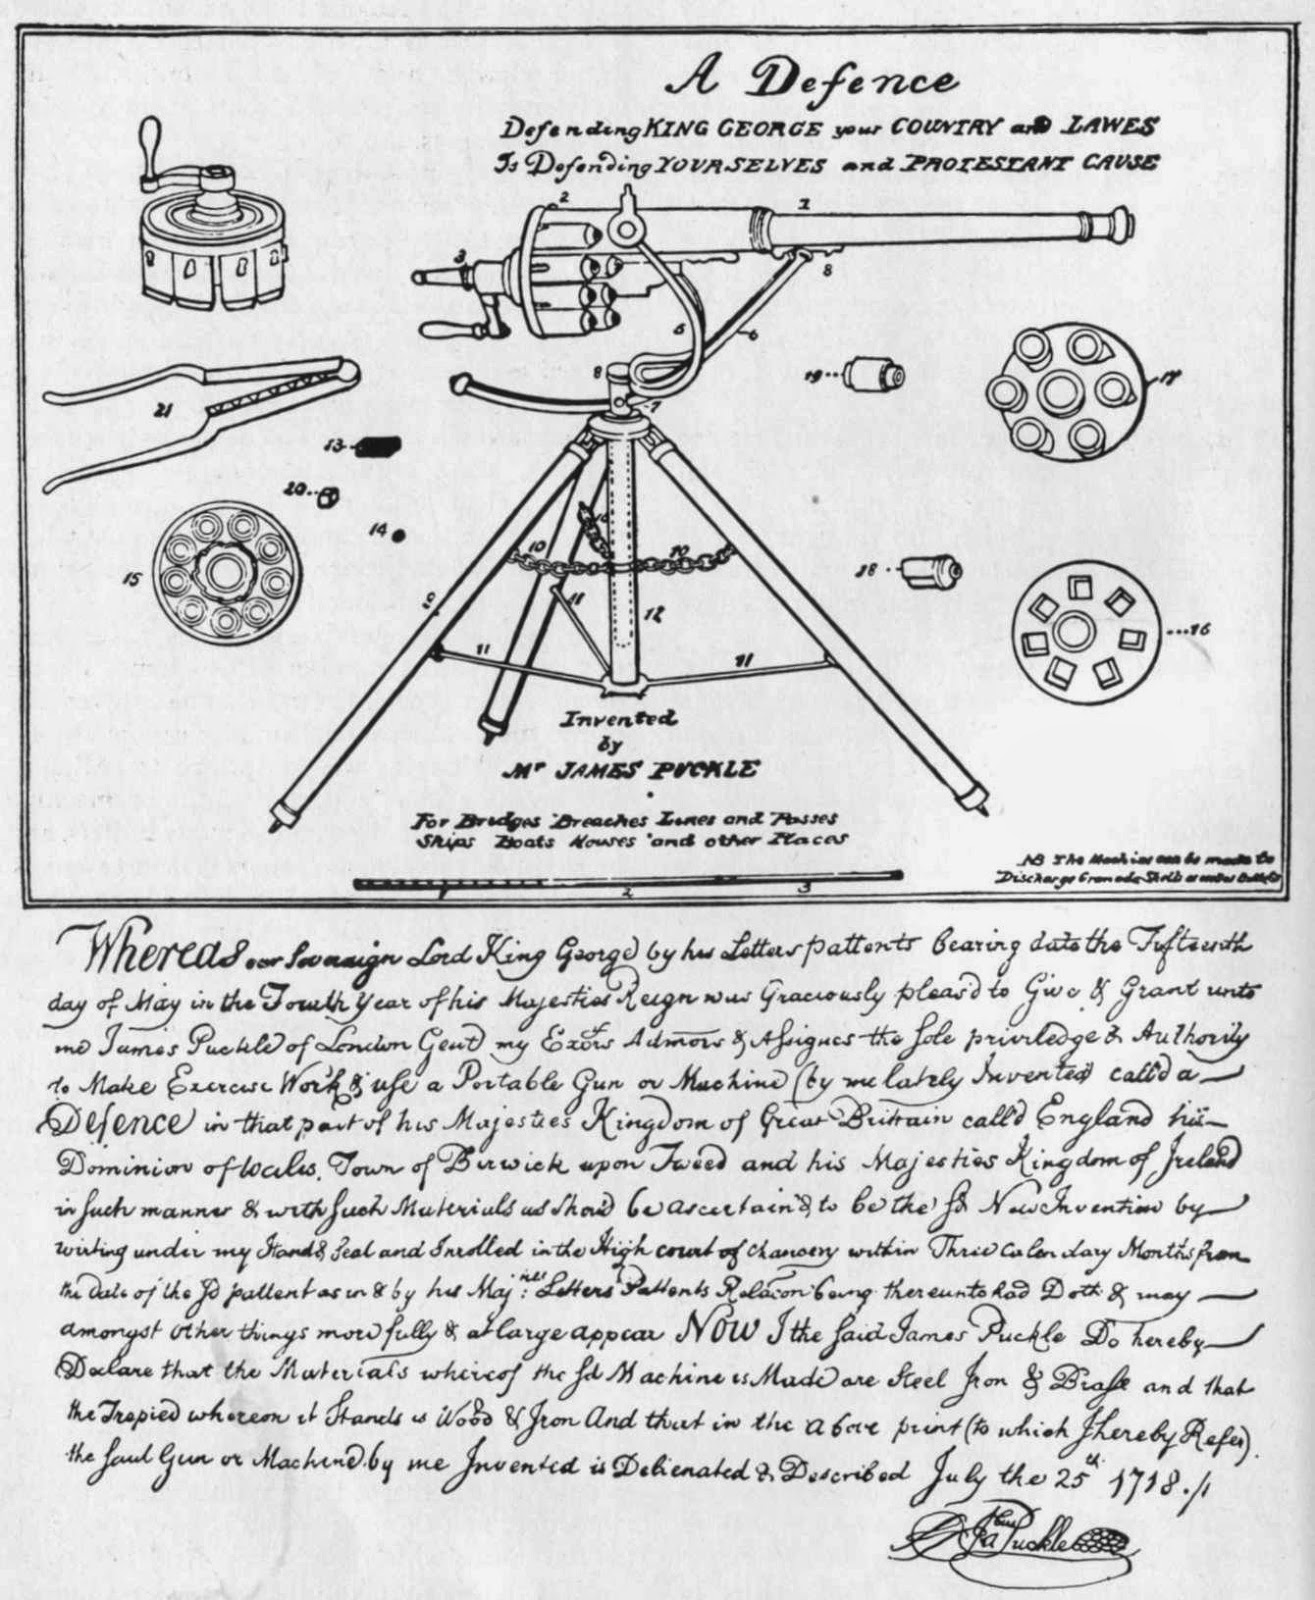 A Defence
Defending KING GEORGE your COUNTRY and LAWES
Is Defending YOURSELVES and PROTESTANT CAUSE
2
1
3
8
5
6
19
17
8
7
21
13
20
14
10
10
10
15
18
9
11
12
16
11
11
Invented
by
Mr JAMES PUCKLE
For Bridges Breaches Lines and Passes
Ships Boats Houses and other Places
NB The Machine can be made to
Discharge Granado Shells as well as Bullets
1 2 3
Whereas our Soveraign Lord King George by his Letters pattents bearing date the Fifteenth
day of May in the Fourth Year of his Majesties Reign was Graciously pleas'd to Give & Grant unto
me James Puckle of London Gent my Exõrs Admors & Assignes the sole priviledge & Authority
to Make Exercise Work & use a Portable Gun or Machine (by me lately Invented) call'd a
Defence in that part of his Majesties Kingdom of Great Brittain call'd England his
Dominion of Wales, Town of Berwick upon Tweed and his Majesties Kingdom of Ireland
in such manner & with such Materials as should be ascertain'd to be the sd New Invention by
writing under my Hand & Seal and Inrolled in the High court of chancery within Three Calendary Months from
the date of the sd pattent as in & by his Maj:ties Letters Pattents Relacon being thereunto had Doth & may
amongst other things more fully & at large appear NOW I the said James Puckle Do hereby
Declare that the Materials whereof the sd Machine is Made are Steel Iron & Brass and that
the Trepied whereon it Stands is Wood & Iron And that in the above print (to which I hereby Refer)
the said Gun or Machine by me Invented is Delienated & Described July the 25th 1718.
Ja Puckle